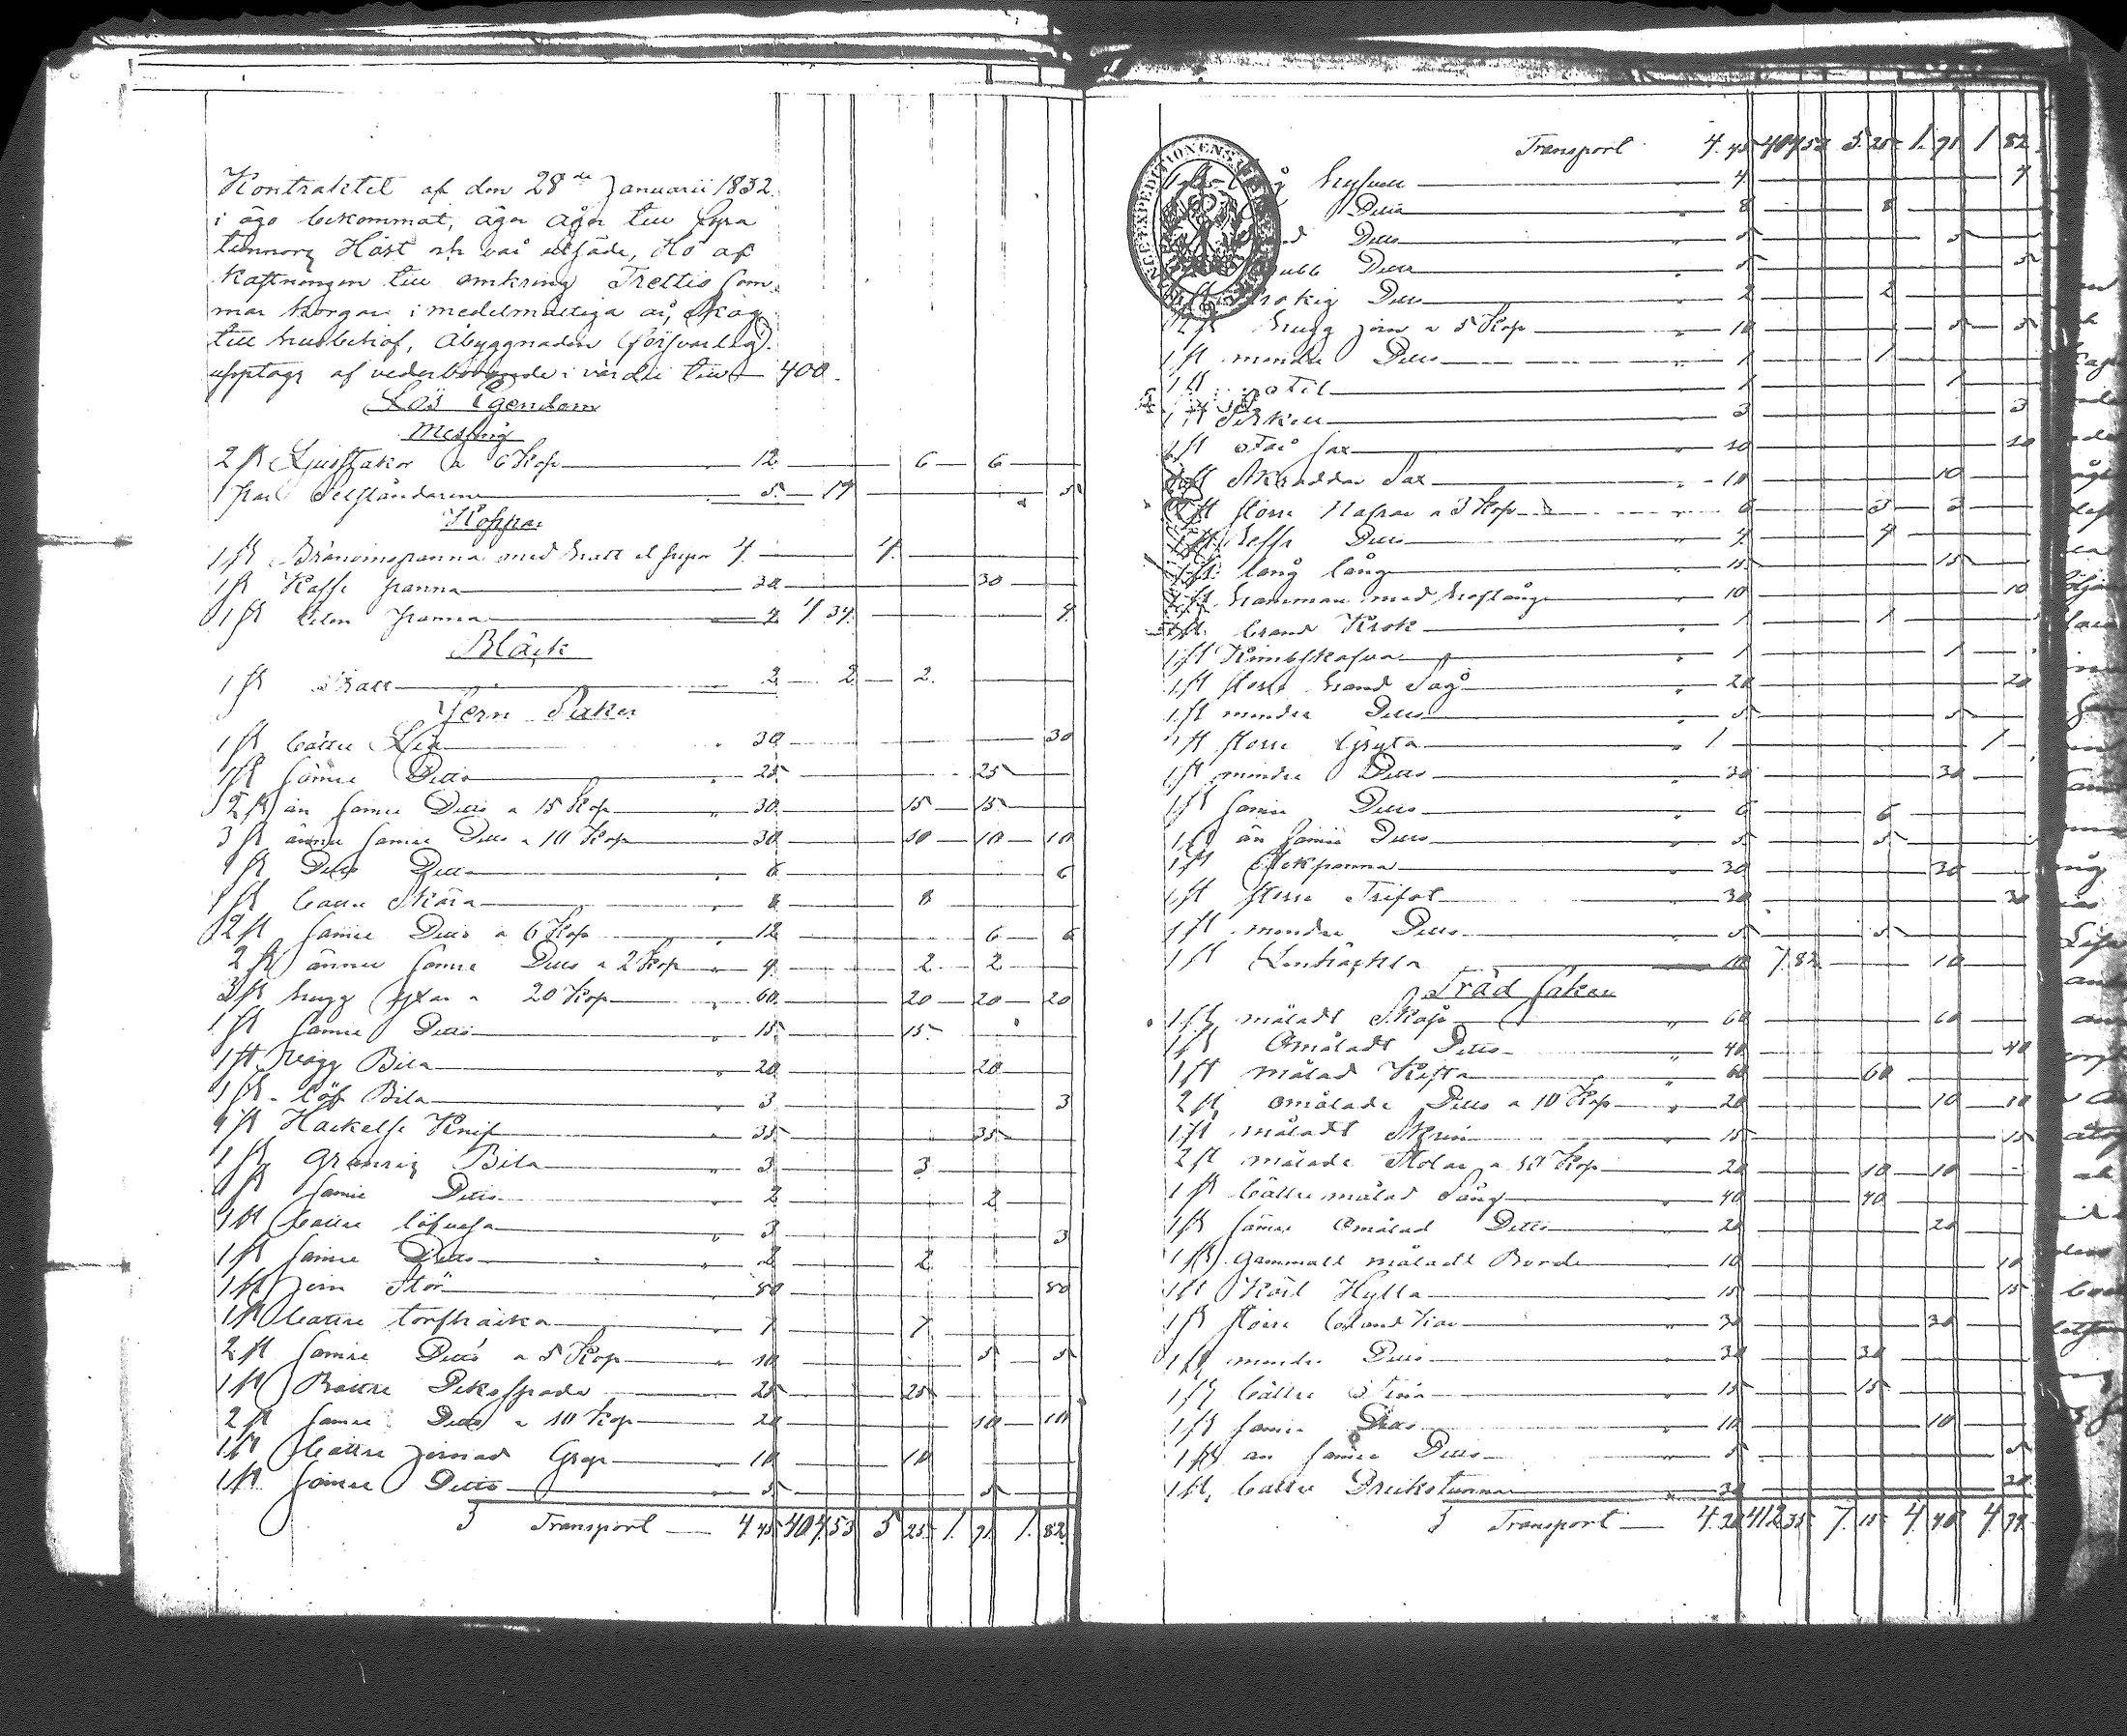 Kontraktet af den 28de Januarii 1832.
i ägo bekommat, äger åker till fyra
tunnors Höst och vår utsäde, Hö af
till omkring Trettio Som
mar i medelmåttiga år, skog
till husbehof, Åbyggnaden försvarlig,
upptages af vederbörande i värde till — 400.
Lös Egendom
Messing
2 st Ljusstakar a 6 Kop 12 6 6
1 par 5 17 5
Koppar
1 st Bränvinspanna med hatt och pipor 4 4
1 st Kaffe panna 30 30
1 st liten panna 4 4 34 4
Bläck
1 st Tratt 2 2 2
Jern Saker
1 st bättre Lia 30 30
1 st sämre Ditto 25 25
2 st än sämre Ditto a 15 Kop 30 15 15
3 st ännu sämre Ditto a 10 Kop 30 10 10 10
1 st Ditto Ditto 6 6
1 st bättre Skära 8 8
2 st sämre Ditto a 6 Kop 12 6 6
2 st ännu sämre Ditto a 2 Kop 4 2 2
3 st hugg yxar a 20 Kop 60 20 20 20
1 st sämre Ditto 15 15
1 st vägg Bila 20 20
1 st löf Bila 3 3
1 st Hackelse Knif 35 35
1 st Bila 3 3
1 st sämre Ditto 2 2
1 st bättre 3 3
1 st sämre Ditto 2 2
1 st jern Stör 80 80
1 st bättre torfhacka 7 7
2 st sämre Ditto a 5 Kop 10 5 5
1 st Bättre Dikesspade 25 25
2 st sämre Ditto a 10 Kop 20 10 10
1 st bättre Grep 10 10
1 st sämre Ditto 5 5
Transport 4 45 404 53 5 25 1. 91 1. 82
Transport 4. 45 404 53 5. 25 1. 91 1 82
4 4
Ditto 8 8
Ditto 5 5
Ditto 5 5
Ditto 2 2
2 st hugg jern a 5 Kop 10 5 5
1 st mindre Ditto 1 1
1 st 1 1
1 st 3 3
1 st Får sax 10 10
1 st Skräddar Sax 10 10
2 st större Nafrar a 3 Kop 6 3 3
Ditto 4 4
1 st lång tång 15 15
1 st hammare med hoftång 10 10
1 st brand Krok 1 1
1 st 1 1
1 st större hand Såg 20 20
1 st mindre Ditto 5 5
1 st större Gryta 1 1
1 st mindre Ditto 30 30
1 st sämre Ditto 6 6
1 st än sämre Ditto 5 5
1 st Stekpanna 30 30
1 st större Trefot 30 30
1 st mindre Ditto 5 5
1 st Linhäckla 10 7 82 10
Träd saker
1 st måladt Skåp 60 60
1 st Omåladt Ditto 40 40
1 st målad Kista 60 60
2 st omålade Ditto a 10 Kop 20 10 10
1 st måladt Skrin 15 15
2 st målade Stolar a 10 Kop 20 10 10
1 st bättre målad Säng 40 40
1 st sämre Omålad Ditto 20 20
1 st gammalt måladt Bord 10 10
1 st Kärl Hylla 15 15
1 st större 30 30
1 st mindre Ditto 30 30
1 st bättre 15 15
1 st sämre Ditto 10 10
1 st än sämre Ditto 5 5
1 st bättre Drickstunna 30 30
Transport 4. 20 412 35 7. 15 4. 40 4. 79